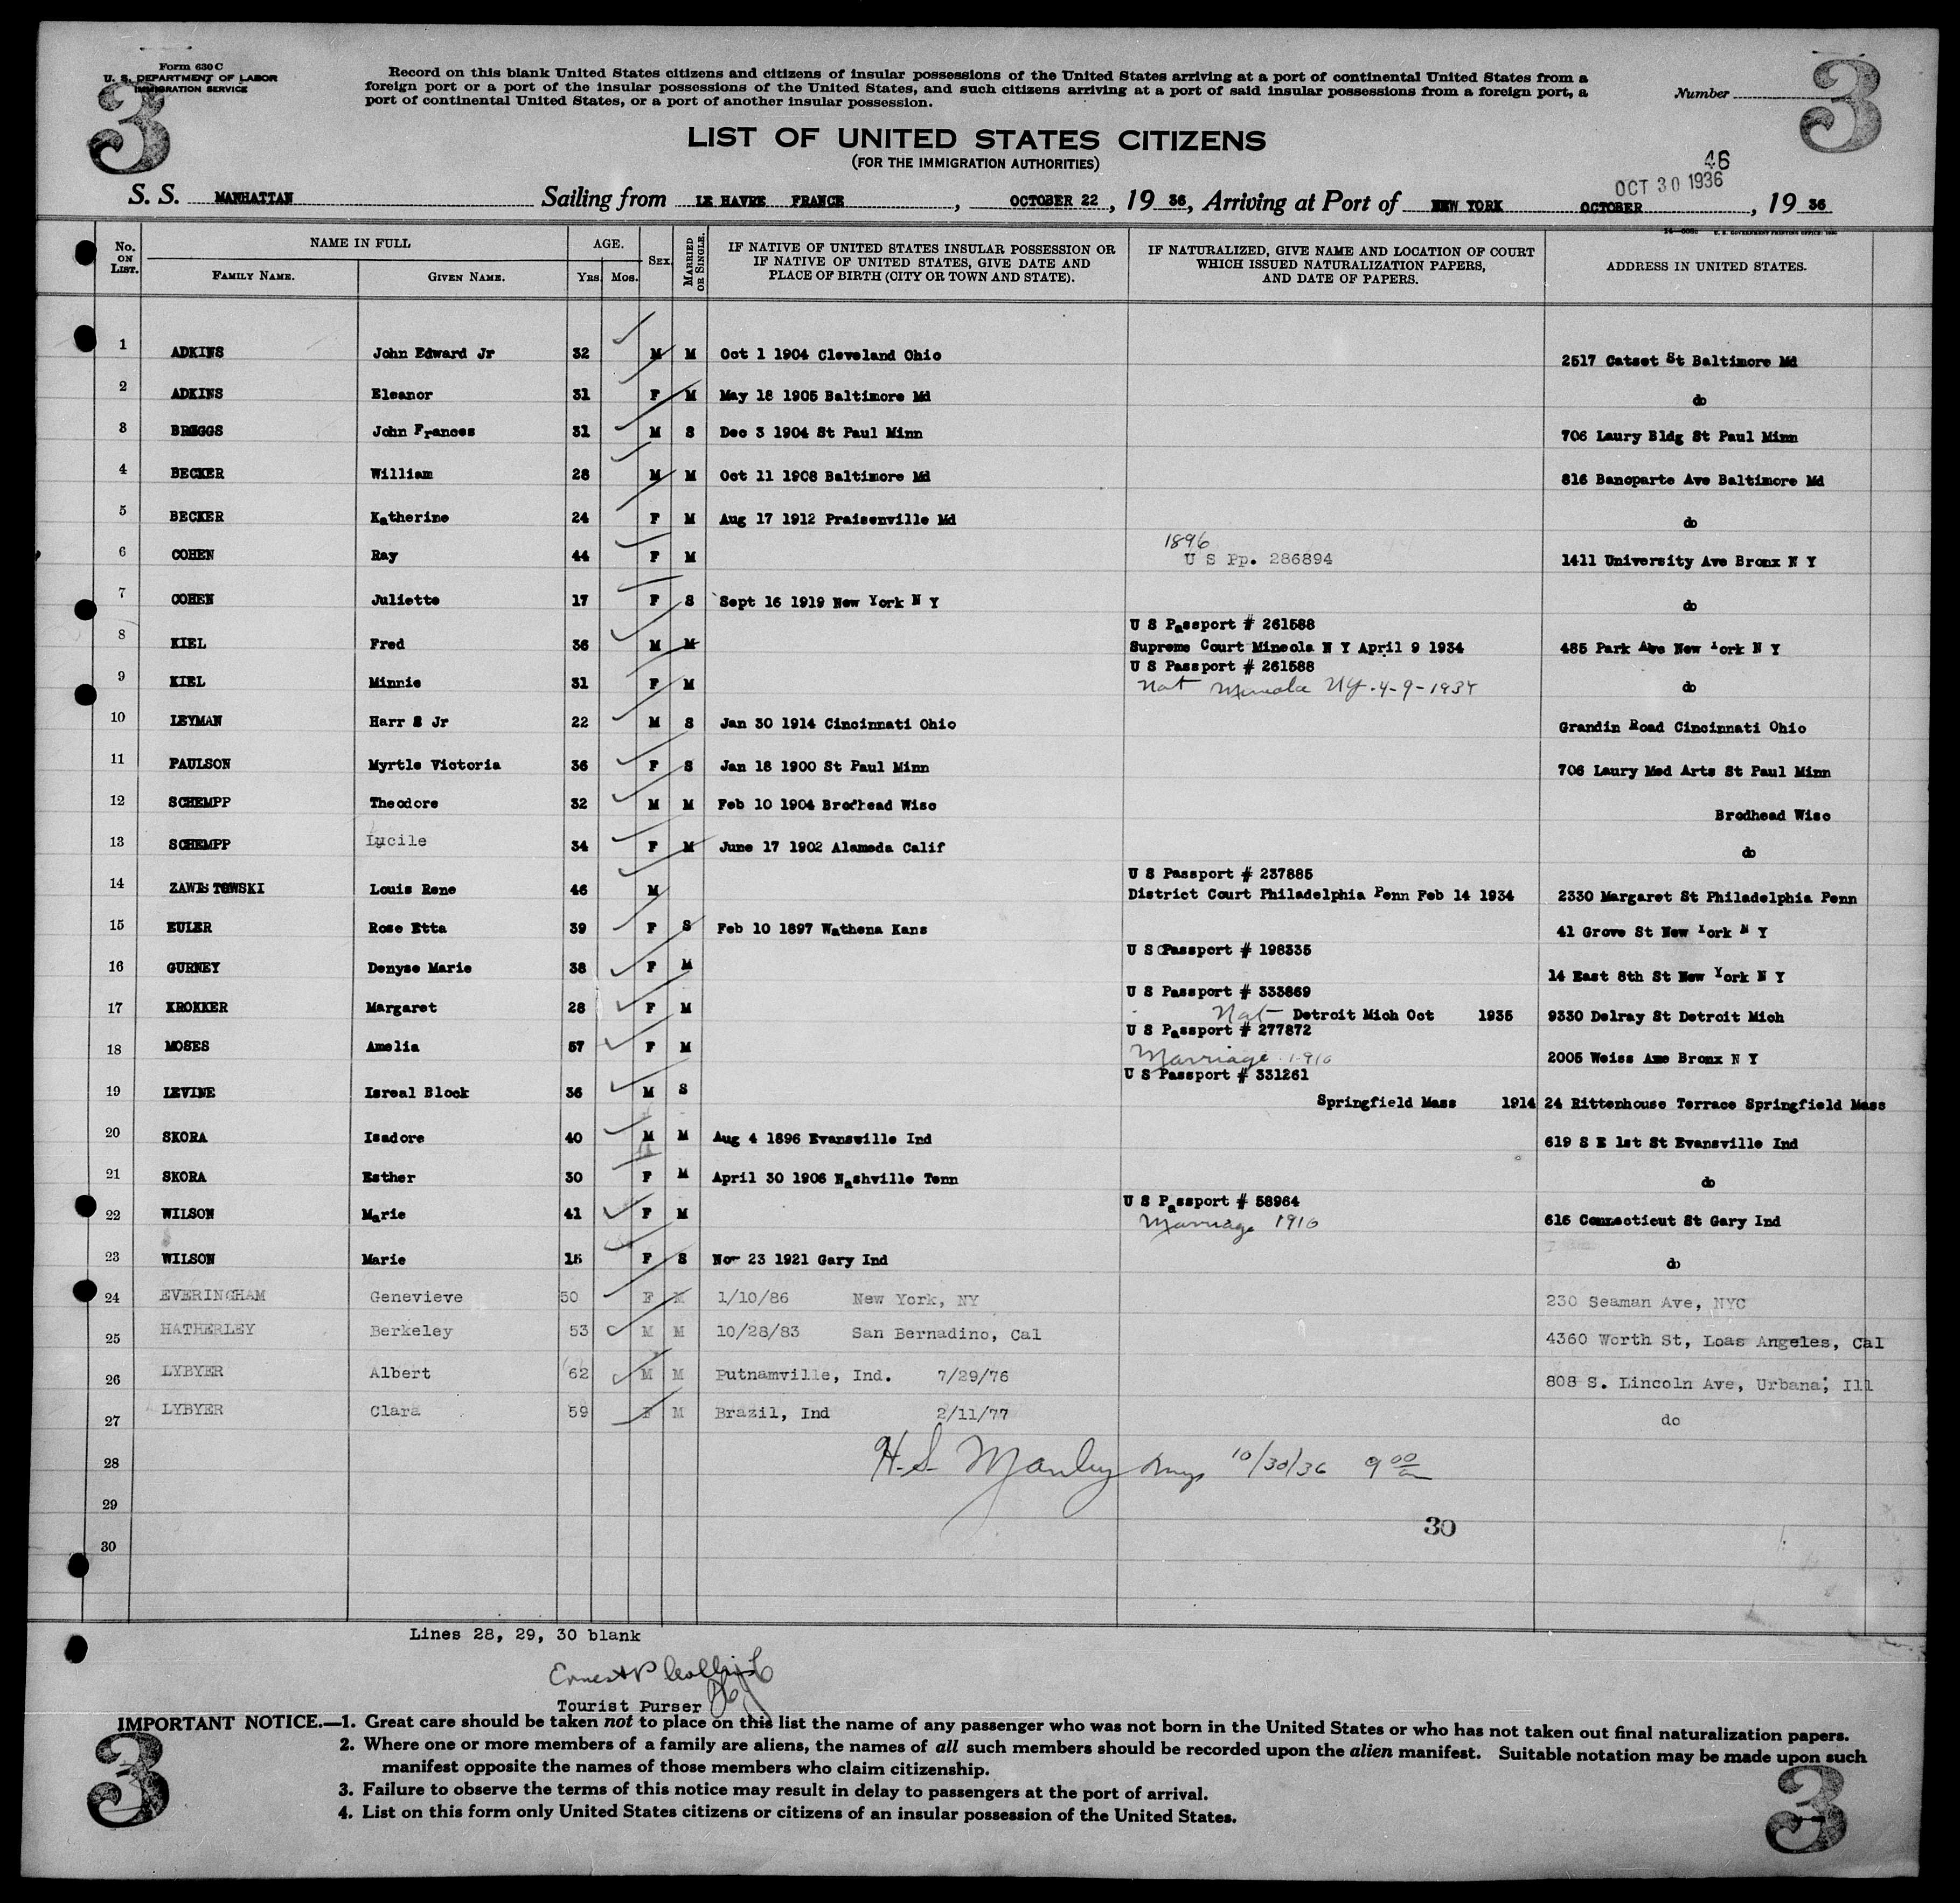 Form 630 C
U. S. DEPARTMENT OF LABOR
IMMIGRATION SERVICE
3
Record on this blank United States citizens and citizens of insular possessions of the United States arriving at a port of continental United States from a
foreign port or a port of the insular possessions of the United States, and such citizens arriving at a port of said insular possessions from a foreign port, a
port of continental United States, or a port of another insular possession.
Number
3
LIST OF UNITED STATES CITIZENS
(FOR THE IMMIGRATION AUTHORITIES)
46
OCT 30 1936
S. S. MANHATTAN Sailing from LE HAVRE FRANCE, OCTOBER 22, 19 36, Arriving at Port of NEW YORK OCTOBER, 19 36
No. ON LIST. NAME IN FULL FAMILY NAME. GIVEN NAME. AGE. Yrs. Mos. SEX. MARRIED OR SINGLE. IF NATIVE OF UNITED STATES INSULAR POSSESSION OR IF NATIVE OF UNITED STATES, GIVE DATE AND PLACE OF BIRTH (CITY OR TOWN AND STATE). IF NATURALIZED, GIVE NAME AND LOCATION OF COURT WHICH ISSUED NATURALIZATION PAPERS, AND DATE OF PAPERS. ADDRESS IN UNITED STATES.
1 ADKINS John Edward Jr 32 M M Oct 1 1904 Cleveland Ohio 2517 Catset St Baltimore Md
2 ADKINS Eleanor 31 F M May 18 1905 Baltimore Md do
3 BRGGS John Frances 31 M S Dec 3 1904 St Paul Minn 706 Laury Bldg St Paul Minn
4 BECKER William 28 M M Oct 11 1908 Baltimore Md 816 Banoparte Ave Baltimore Md
5 BECKER Katherine 24 F M Aug 17 1912 Praisenville Md do
1896
6 COHEN Ray 44 F M U S Pp. 286894 1411 University Ave Bronx N Y
7 COHEN Juliette 17 F S Sept 16 1919 New York N Y do
U S Passport # 261588
8 KIEL Fred 36 M M Supreme Court Mineola N Y April 9 1934 485 Park Ave New York N Y
U S Passport # 261588
9 KIEL Minnie 31 F M Nat Mineola NY. 4-9-1934 do
10 LEYMAN Harr S Jr 22 M S Jan 30 1914 Cincinnati Ohio Grandin Road Cincinnati Ohio
11 PAULSON Myrtle Victoria 36 F S Jan 18 1900 St Paul Minn 706 Laury Med Arts St Paul Minn
12 SCHEMPP Theodore 32 M M Feb 10 1904 Brodhead Wisc Brodhead Wisc
13 SCHEMPP Lucile 34 F M June 17 1902 Alameda Calif do
U S Passport # 237885
14 ZAWISTOWSKI Louis Rene 46 M District Court Philadelphia Penn Feb 14 1934 2330 Margaret St Philadelphia Penn
15 EULER Rose Etta 39 F S Feb 10 1897 Wathena Kans 41 Grove St New York N Y
U S Passport # 198335
16 GURNEY Denyse Marie 38 F M 14 East 8th St New York N Y
U S Passport # 333869
17 KROKKER Margaret 28 F M Nat Detroit Mich Oct 1935 9330 Delray St Detroit Mich
U S Passport # 277872
18 MOSES Amelia 57 F M Marriage 1-916 2005 Weiss Ame Bronx N Y
U S Passport # 331261
19 LEVINE Isreal Block 36 M S Springfield Mass 1914 24 Rittenhouse Terrace Springfield Mass
20 SKORA Isadore 40 M M Aug 4 1896 Evansville Ind 619 S E 1st St Evansville Ind
21 SKORA Esther 30 F M April 30 1906 Nashville Tenn do
U S Passport # 58964
22 WILSON Marie 41 F M Marriage 1916 616 Connecticut St Gary Ind
23 WILSON Marie 15 F S Nov 23 1921 Gary Ind do
24 EVERINGHAM Genevieve 50 F M 1/10/86 New York, NY 230 Seaman Ave, NYC
25 HATHERLEY Berkeley 53 M M 10/28/83 San Bernadino, Cal 4360 Worth St, Loas Angeles, Cal
26 LYBYER Albert 62 M M Putnamville, Ind. 7/29/76 808 S. Lincoln Ave, Urbana, Ill
27 LYBYER Clara 59 F M Brazil, Ind 2/11/77 do
28 H. S. Manley 10/30/36 9 00
29
30
30
Lines 28, 29, 30 blank
Tourist Purser
IMPORTANT NOTICE.—1. Great care should be taken not to place on this list the name of any passenger who was not born in the United States or who has not taken out final naturalization papers.
2. Where one or more members of a family are aliens, the names of all such members should be recorded upon the alien manifest. Suitable notation may be made upon such
manifest opposite the names of those members who claim citizenship.
3. Failure to observe the terms of this notice may result in delay to passengers at the port of arrival.
4. List on this form only United States citizens or citizens of an insular possession of the United States.
3
3